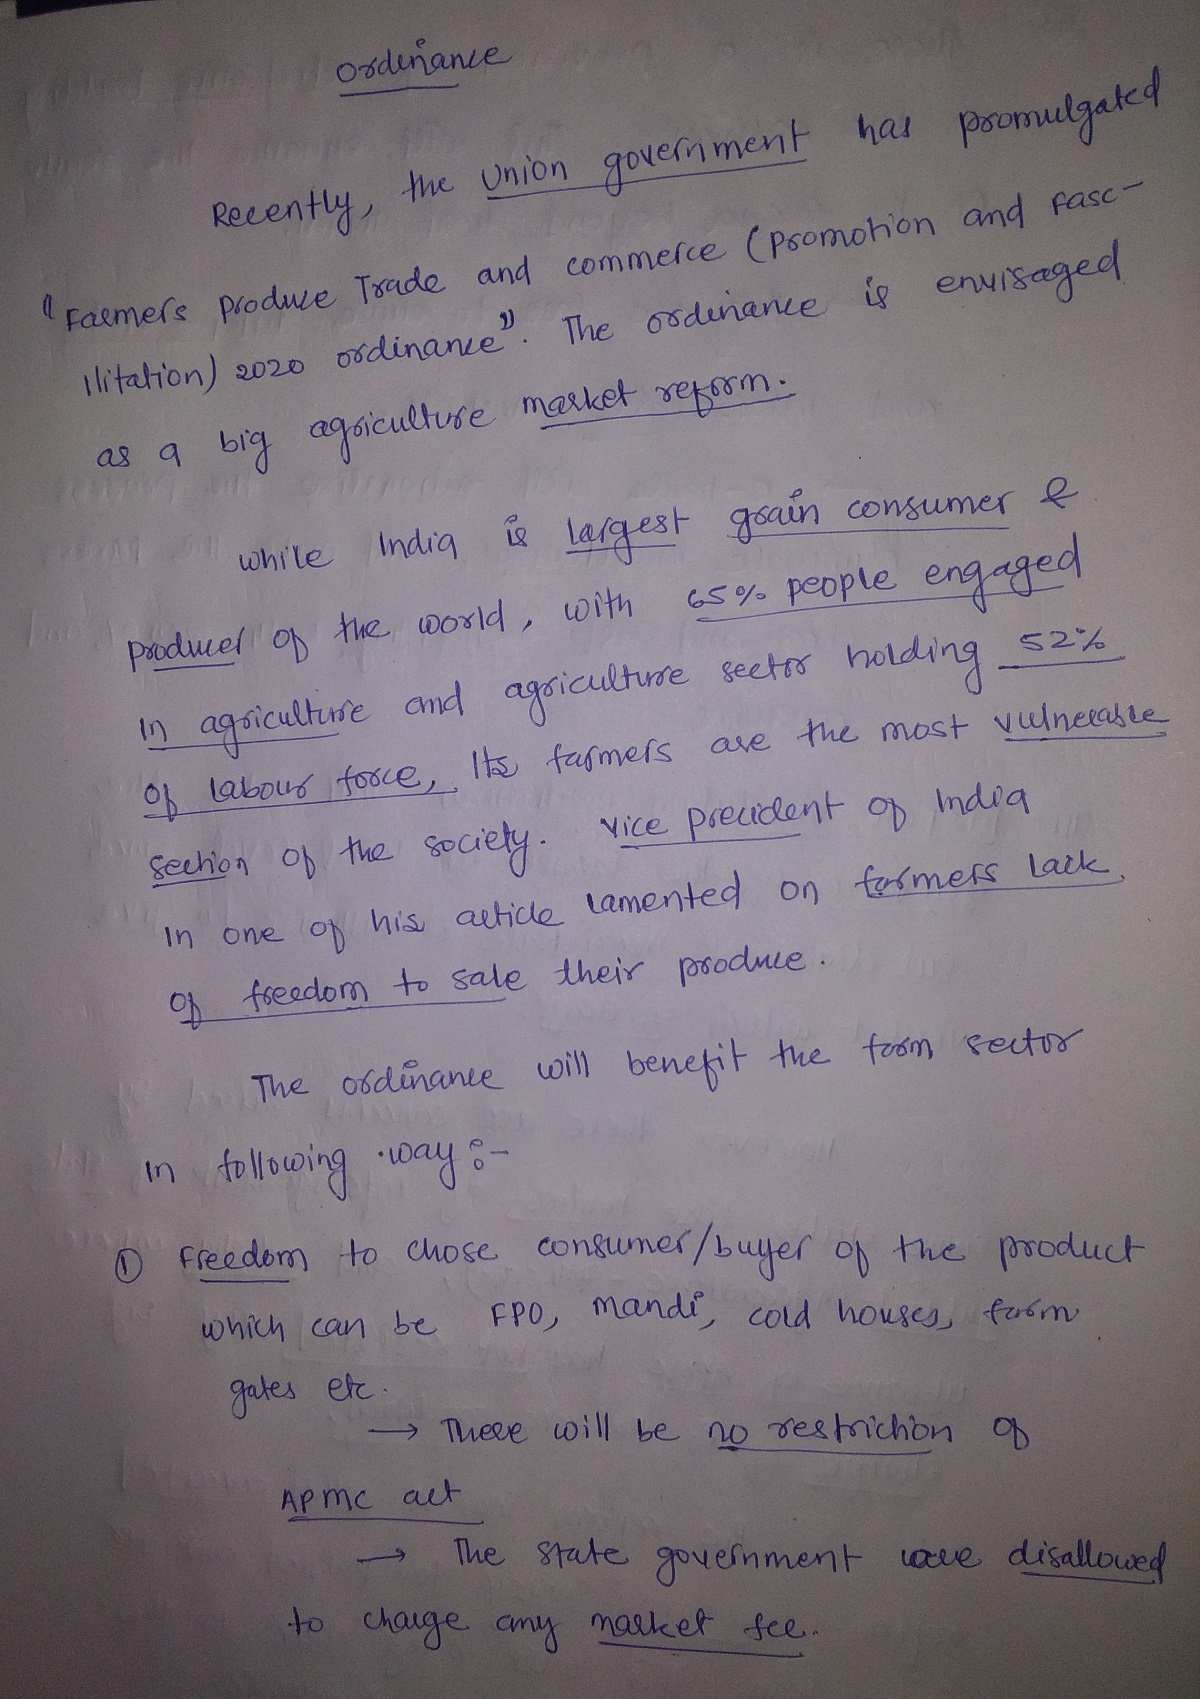 Ordinance
Recently, the Union government has promulgated
"Farmers Produce Trade and commerce (promotion and Fasc-
ilitation) 2020 ordinance". The ordinance is envisaged
as a big agriculture market reform.
while India is largest grain consumer &
producer of the world, with 65% people engaged
in agriculture and agriculture sector holding 52%
of labour force, Its farmers are the most vulnerable
section of the society. Vice president of India
in one of his article lamented on farmers lack
of freedom to sale their produce.
The ordinance will benefit the farm sector
in following way :-
① Freedom to chose consumer/buyer of the product
which can be FPO, mandi, cold houses, farm
gates etc.
→ There will be no restriction of
APMC act
→ The state government are disallowed
to charge any market fee.